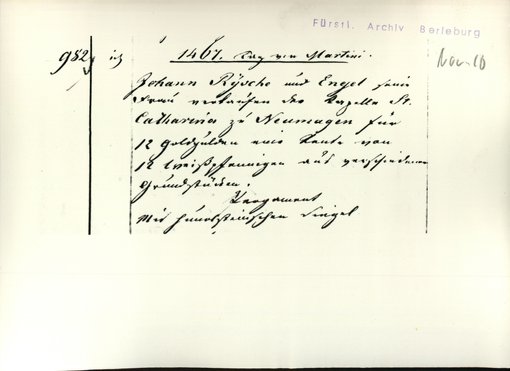 Fürstl. Archiv Berleburg
982 1461. Tag von Martini.
Nov. 10
Johann Rÿsche und Engel seine
Frau verkaufen der Kapelle St.
Catharina zu Neumagen für
12 Goldgulden eine Rente von
12 Weißpfennigen aus verschiedenen
Grundstücken.
Pergament
Mit Hunolsteinischen Siegel